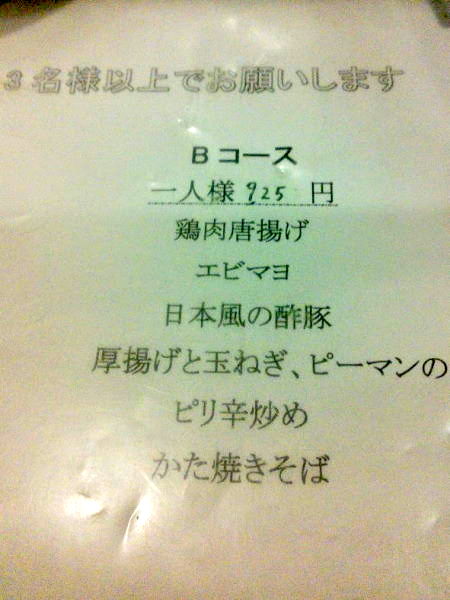 3名様以上でお願いします
Bコース
一人様 925 円
鶏肉唐揚げ
エビマヨ
日本風の酢豚
厚揚げと玉ねぎ、ピーマンの
ピリ辛炒め
かた焼きそば